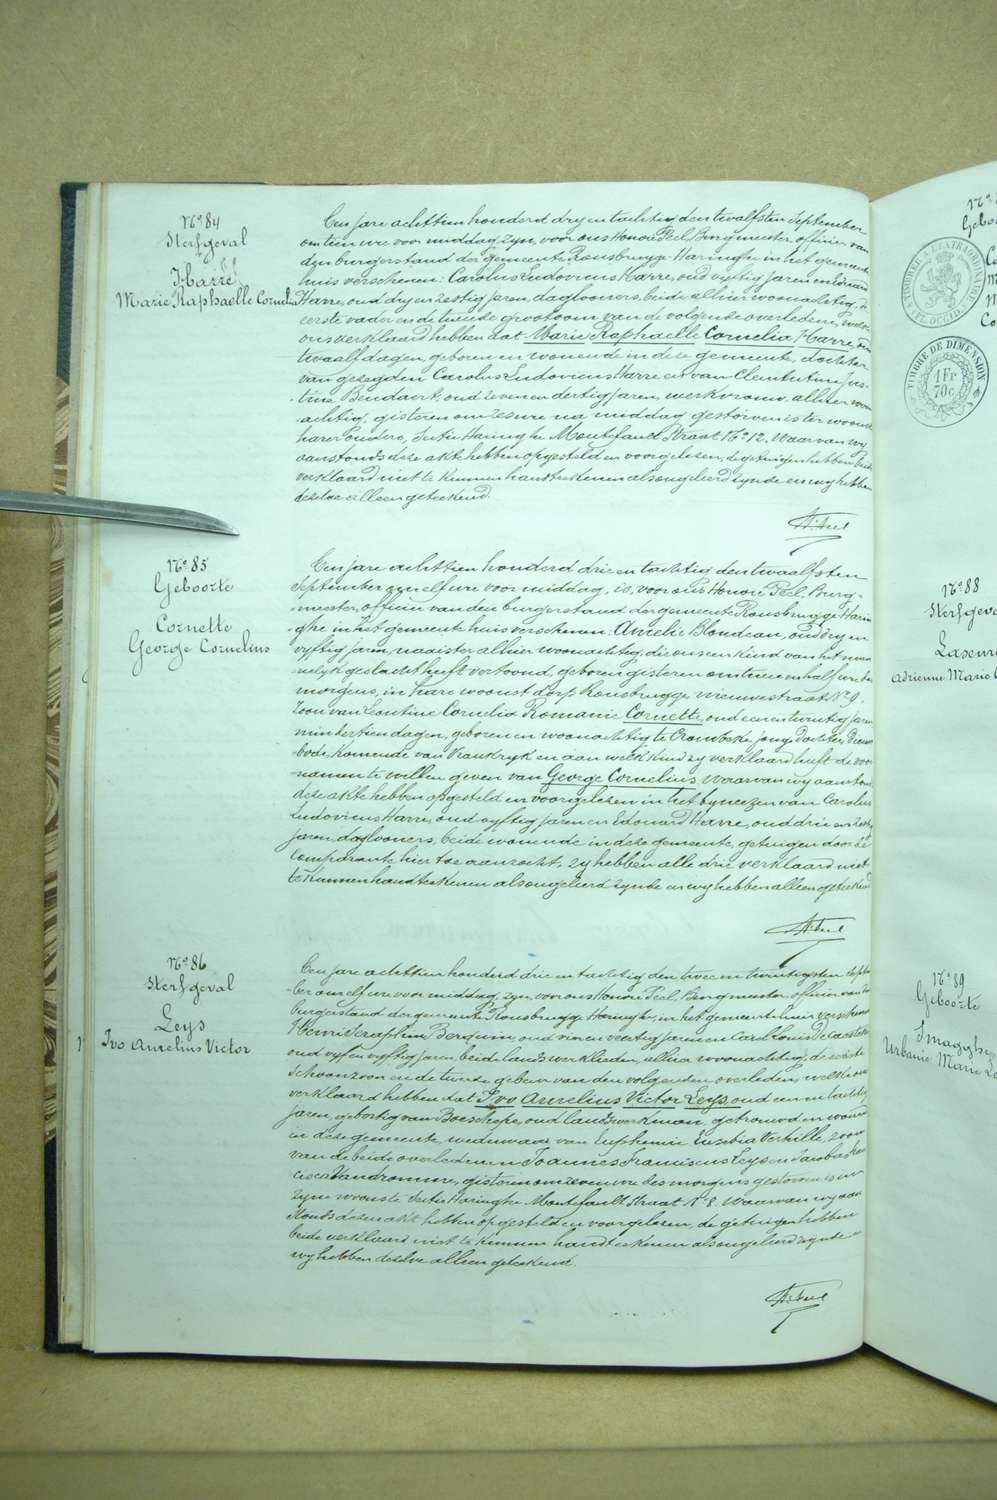 N° 84
Sterfgeval
Harré
Marie Raphaelle Cornelia
Een jare achttien honderd dry en tachtig den twaalfsten September
om tien ure voor middag, zyn, voor ons Honoré Peel, Burgmeester, officier van
den burgerstand der gemeente Rousbrugge-Haringhe in het gemeente
huis verschenen: Carolus Ludovicus Harre, oud vyftig jaren en Edouard
Harre, oud dry en zestig jaren, dagloners, beide alhier woonachtig, de
eerste vader en de tweede grootoom van de volgende overledene, welke
ons verklaard hebben dat Marie Raphaelle Cornelia Harre, oud
twaalf dagen, geboren en wonende in deze gemeente, dochter
van gezegden Carolus Ludovicus Harre en van Clementina Jus-
tina Bendaert, oud zeven en dertig jaren, werkvrouw, alhier woon
achtig, gisteren om zes ure na middag gestorven is ter woonste
harer ouders, Sectie Haringhe Moutefault Straat N° 12. Waarvan wy
aanstonds deze akte hebben opgesteld en voorgelezen, de getuigen hebben beide
verklaard niet te kunnen handteekenen als ongeleerd zynde en wy hebben
dezelve alleen geteekend.
H. Peel
N° 85
Geboorte
Cornette
George Cornelius
Een jare achttien honderd drie en tachtig den twaalfsten
September om elf ure voor middag, is, voor ons Honoré Peel, Burg-
meester, officier van den burgerstand der gemeente Rousbrugge Harin
ghe in het gemeente huis verschenen: Amelie Blondeau, oud dry en
vyftig jaren, naaister alhier woonachtig, die ons een kind van het man
nelyk geslacht heeft vertoond, geboren gisteren om twee en half ure des
morgens, in hare woonst dorp Rousbrugge nieuwestraat N° 9.
Zoon van Leontine Cornelia Romanie Cornette, oud een en twintig jaren
min tien dagen, geboren en woonachtig te Crombeke, jonge dochter, Dienst
bode, komende van Vrankryk en aan welk kind zy verklaard heeft de voor
namen te willen geven van George Cornelius waarvan wy aanstonds
deze akte hebben opgesteld en voorgelezen in het bywezen van Carolus
Ludovicus Harre, oud vyftig jaren en Edouard Harre, oud drie en zestig
jaren, dagloners, beide wonende in deze gemeente, getuigen door de
Comparante hier toe aanzocht, zy hebben alle drie verklaard niet
te kunnen handteekenen als ongeleerd zynde en wy hebben alleen geteekend
H. Peel
N° 86
Sterfgeval
Leys
Ivo Aurelius Victor
Een jare achttien honderd drie en tachtig den twee en twintigsten Septem
ber om elf ure voor middag, zyn, voor ons Honoré Peel, Burgmeester, officier van den
burgerstand der gemeente Rousbrugge Haringhe, in het gemeente huis verschenen:
Henri Seraphin Berquin, oud vier en veertig jaren en Carel Louis Decaestecker
oud vyf en vyftig jaren, beide landswerklieden, alhier woonachtig, de eerste
schoonzoon en de tweede gebuur van den volgenden overleden, welke ons
verklaard hebben dat Ivo Aurelius Victor Leys, oud een en tachtig
jaren, geboortig van Boeschepe, oud landswerkman, getrouwd en wonende
in deze gemeente, weduwaar van Euphemie Eusebia Verhille, zoon
van de beide overledenen Joannes Franciscus Leys en Jacoba Fran
cisca Vandromme, gisteren om zeven ure des morgens gestorven is in
zyne woonste Sectie Haringhe Moutefault Straat N° 8. Waarvan wy aan
stonds dezen akt hebben opgesteld en voorgelezen, de getuigen hebben
beide verklaard niet te kunnen handteekenen als ongeleerd zynde en
wy hebben dezelve alleen geteekend.
H. Peel
Geboo
TIMBRE DE DIMENSION
1 Fr
70 c
N° 88
Sterfgeva
Adrienne Marie
N° 89
Geboorte
Urbanie Marie